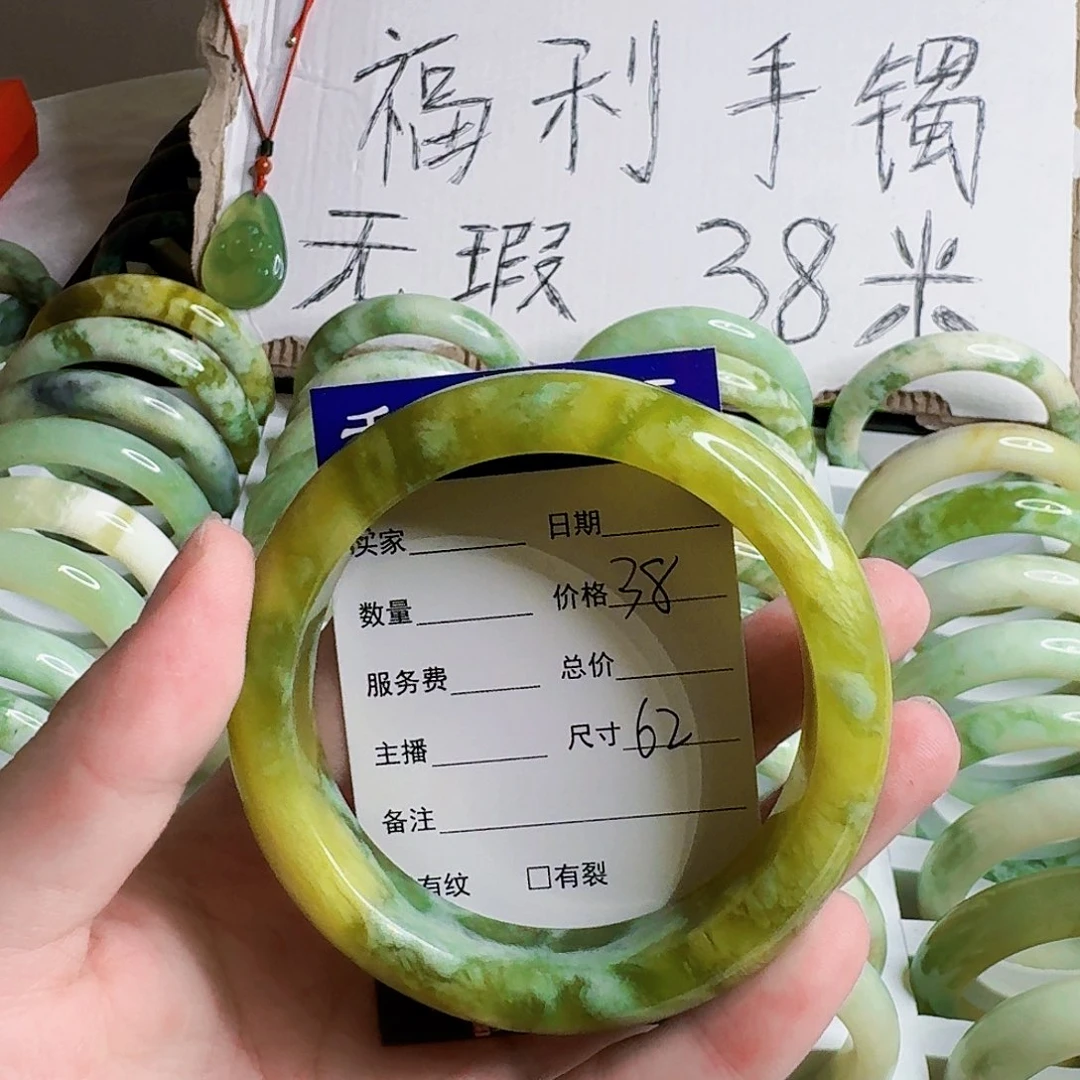 福利手镯
无瑕 38米
卖家 日期
数量 价格 38
服务费 总价
主播 尺寸 62
备注
有纹 □有裂